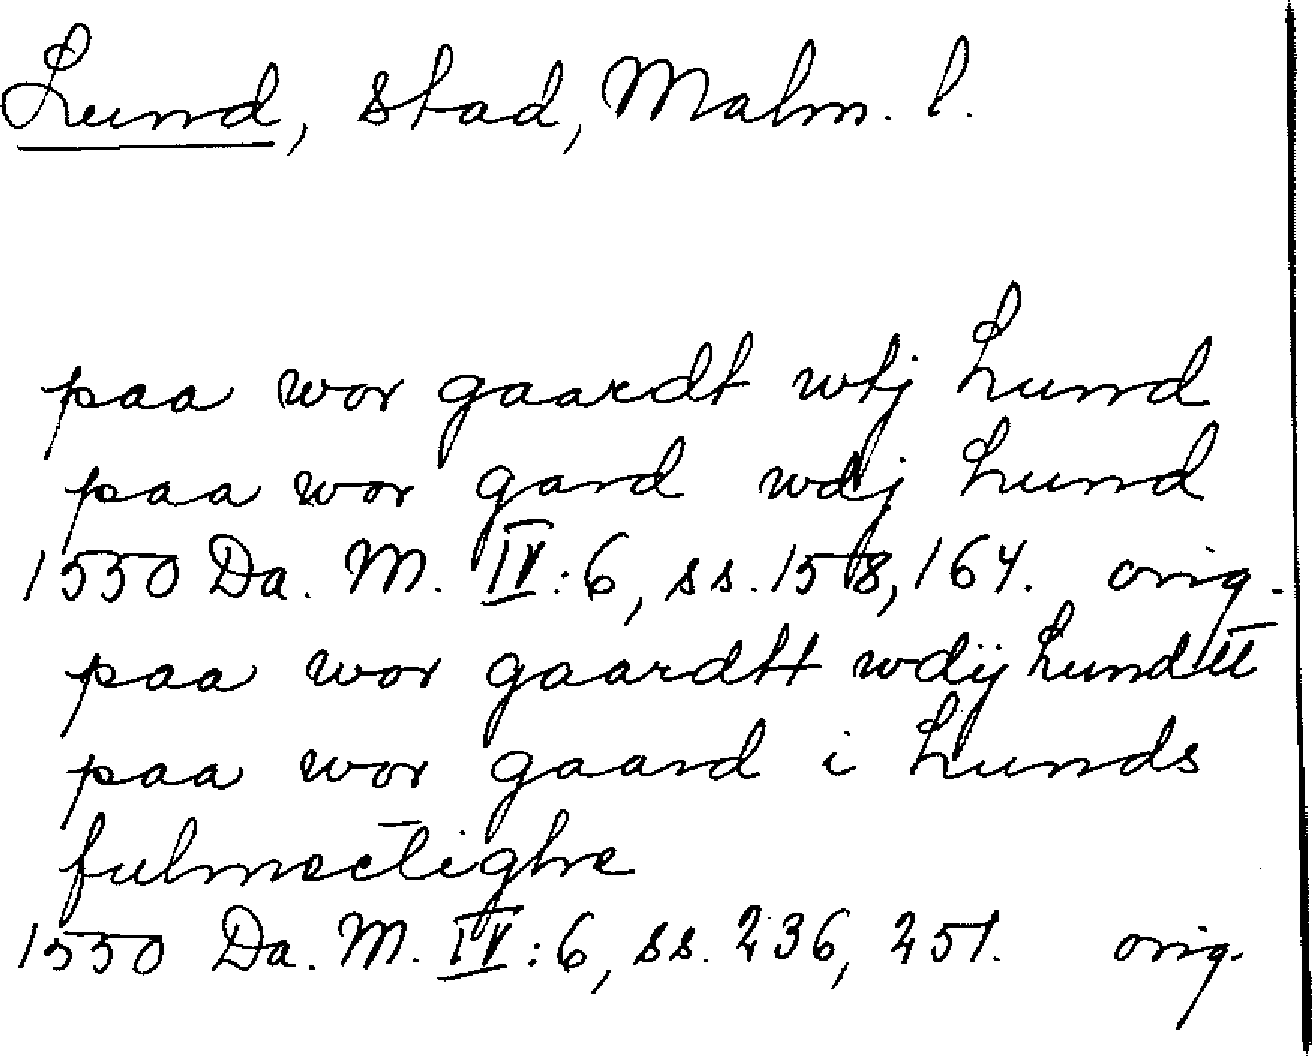 Lund, stad, Malm. l.
paa wor gaardt wtj Lund
paa wor gard wdj Lund
1550 Da. M. IV:6, ss. 158, 164. orig.
paa wor gaardtt wdij Lundtt
paa wor gaard i Lunds
fulmectighe
1550 Da. M. IV:6, ss. 236, 251. orig.